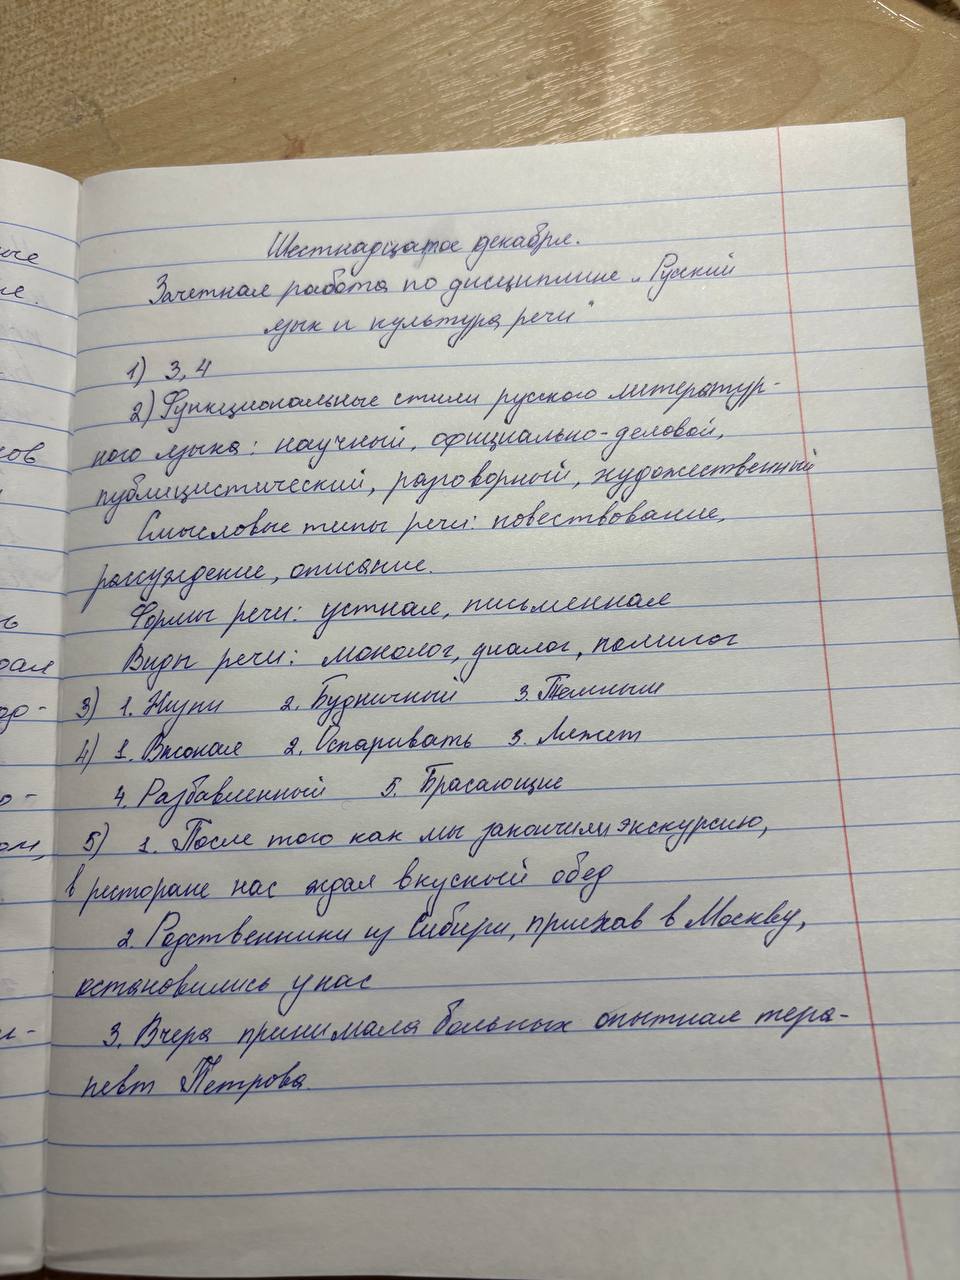 Шестнадцатое декабря.
Зачетная работа по дисциплине „Русский
язык и культура речи"
1) 3, 4
2) Функциональные стили русского литератур-
ного языка: научный, официально-деловой,
публицистический, разговорный, художественный
Смысловые типы речи: повествование,
рассуждение, описание.
Формы речи: устная, письменная
Виды речи: монолог, диалог, полилог
3) 1. Жизни 2. Будничный 3.
4) 1. 2. Оспаривать 3. Ляжет
4. Разбавленный 5. Бросающие
5) 1. После того как мы закончили экскурсию,
в ресторане нас ждал вкусный обед
2. Родственники из Сибири, приехав в Москву,
остановились у нас
3. Вчера принимала больных опытная тера-
певт Петрова.